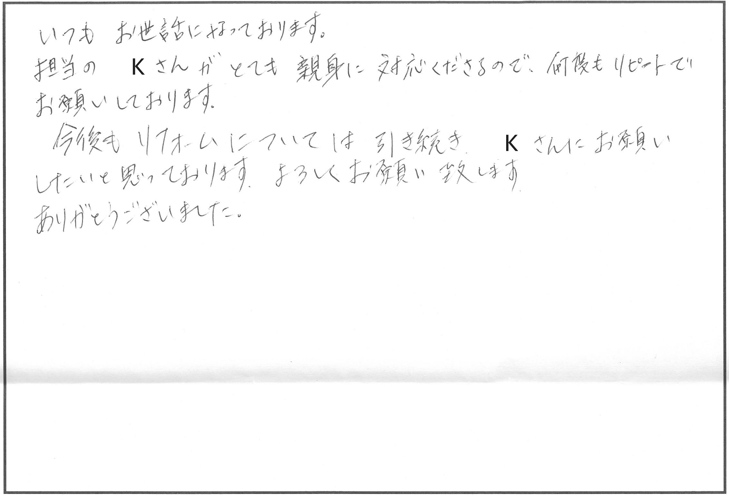 いつも お世話になっております。
担当の Kさんが とても 親身に 対応くださるので、何度もリピートで
お願いしております。
今後も リフォームについては 引き続き Kさんにお願い
したいと思っております。よろしくお願い致します
ありがとうございました。